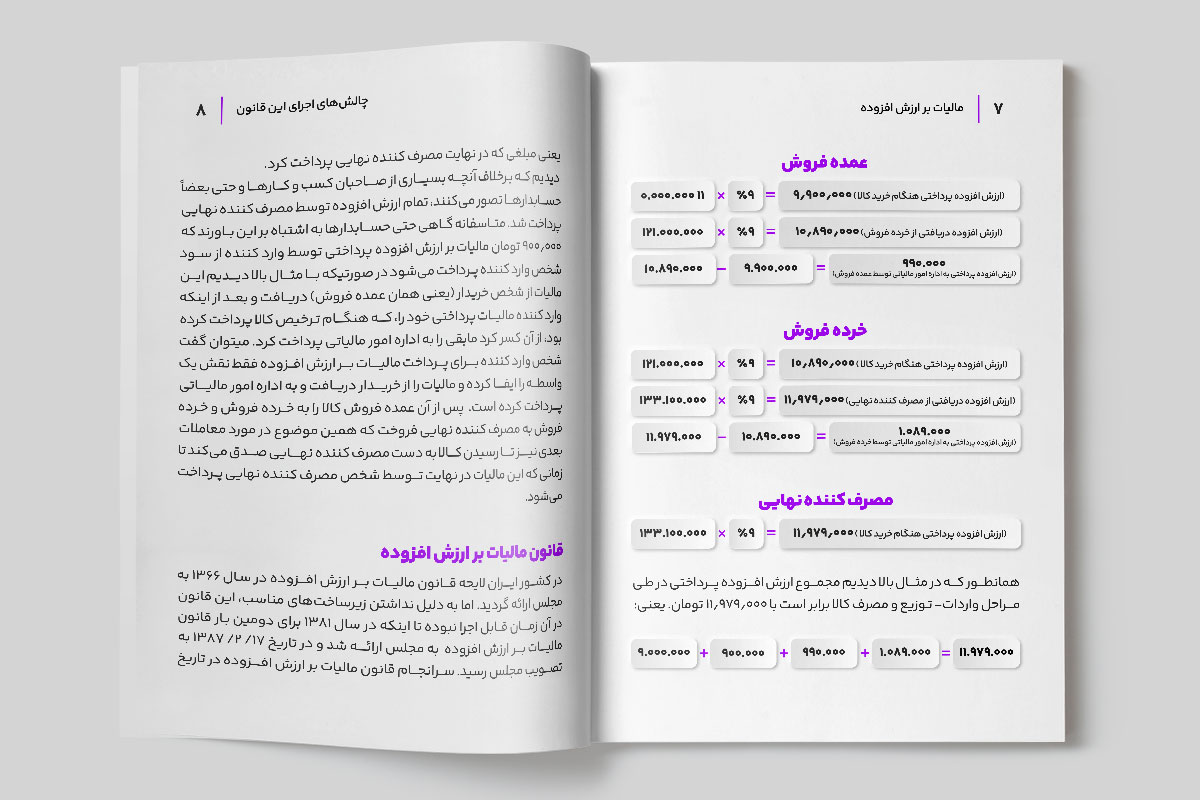 ۷ | مالیات بر ارزش افزوده
عمده فروش
(ارزش افزوده پرداختی هنگام خرید کالا) ۹٫۹۰۰٫۰۰۰ = %۹ × ۰.۰۰۰.۰۰۰ ۱۱
(ارزش افزوده دریافتی از خرده فروش) ۱۰٫۸۹۰٫۰۰۰ = %۹ × ۱۲۱.۰۰۰.۰۰۰
۹۹۰.۰۰۰ = ۹.۹۰۰.۰۰۰ – ۱۰.۸۹۰.۰۰۰
(ارزش افزوده پرداختی به اداره امور مالیاتی توسط عمده فروش)
خرده فروش
(ارزش افزوده پرداختی هنگام خرید کالا) ۱۰٫۸۹۰٫۰۰۰ = %۹ × ۱۲۱.۰۰۰.۰۰۰
(ارزش افزوده دریافتی از مصرف کننده نهایی) ۱۱٫۹۷۹٫۰۰۰ = %۹ × ۱۳۳.۱۰۰.۰۰۰
۱.۰۸۹.۰۰۰ = ۱۰.۸۹۰.۰۰۰ – ۱۱.۹۷۹.۰۰۰
(ارزش افزوده پرداختی به اداره امور مالیاتی توسط خرده فروش)
مصرف کننده نهایی
(ارزش افزوده پرداختی هنگام خرید کالا) ۱۱٫۹۷۹٫۰۰۰ = %۹ × ۱۳۳.۱۰۰.۰۰۰
همانطور که در مثال بالا دیدیم مجموع ارزش افزوده پرداختی در طی
مراحل واردات- توزیع و مصرف کالا برابر است با ۱۱٫۹۷۹٫۰۰۰ تومان. یعنی:
۱۱.۹۷۹.۰۰۰ = ۱.۰۸۹.۰۰۰ + ۹۹۰.۰۰۰ + ۹۰۰.۰۰۰ + ۹.۰۰۰.۰۰۰
چالش‌های اجرای این قانون | ۸
یعنی مبلغی که در نهایت مصرف کننده نهایی پرداخت کرد.
دیدیم که برخلاف آنچه بسیاری از صاحبان کسب و کارها و حتی بعضاً
حسابدارها تصور می‌کنند، تمام ارزش افزوده توسط مصرف کننده نهایی
پرداخت شد. متاسفانه گاهی حتی حسابدارها به اشتباه بر این باورند که
۹۰۰٫۰۰۰ تومان مالیات بر ارزش افزوده پرداختی توسط وارد کننده از سود
شخص وارد کننده پرداخت می‌شود در صورتیکه با مثال بالا دیدیم این
مالیات از شخص خریدار (یعنی همان عمده فروش) دریافت و بعد از اینکه
وارد کننده مالیات پرداختی خود را، که هنگام ترخیص کالا پرداخت کرده
بود، از آن کسر کرد مابقی را به اداره امور مالیاتی پرداخت کرد. میتوان گفت
شخص وارد کننده برای پرداخت مالیات بر ارزش افزوده فقط نقش یک
واسطه را ایفا کرده و مالیات را از خریدار دریافت و به اداره امور مالیاتی
پرداخت کرده است. پس از آن عمده فروش کالا را به خرده فروش و خرده
فروش به مصرف کننده نهایی فروخت که همین موضوع در مورد معاملات
بعدی نیز تا رسیدن کالا به دست مصرف کننده نهایی صدق می‌کند تا
زمانی که این مالیات در نهایت توسط شخص مصرف کننده نهایی پرداخت
می‌شود.
قانون مالیات بر ارزش افزوده
در کشور ایران لایحه قانون مالیات بر ارزش افزوده در سال ۱۳۶۶ به
مجلس ارائه گردید. اما به دلیل نداشتن زیرساخت‌های مناسب، این قانون
در آن زمان قابل اجرا نبوده تا اینکه در سال ۱۳۸۱ برای دومین بار قانون
مالیات بر ارزش افزوده به مجلس ارائه شد و در تاریخ ۱۷/ ۲/ ۱۳۸۷ به
تصویب مجلس رسید. سرانجام قانون مالیات بر ارزش افزوده در تاریخ